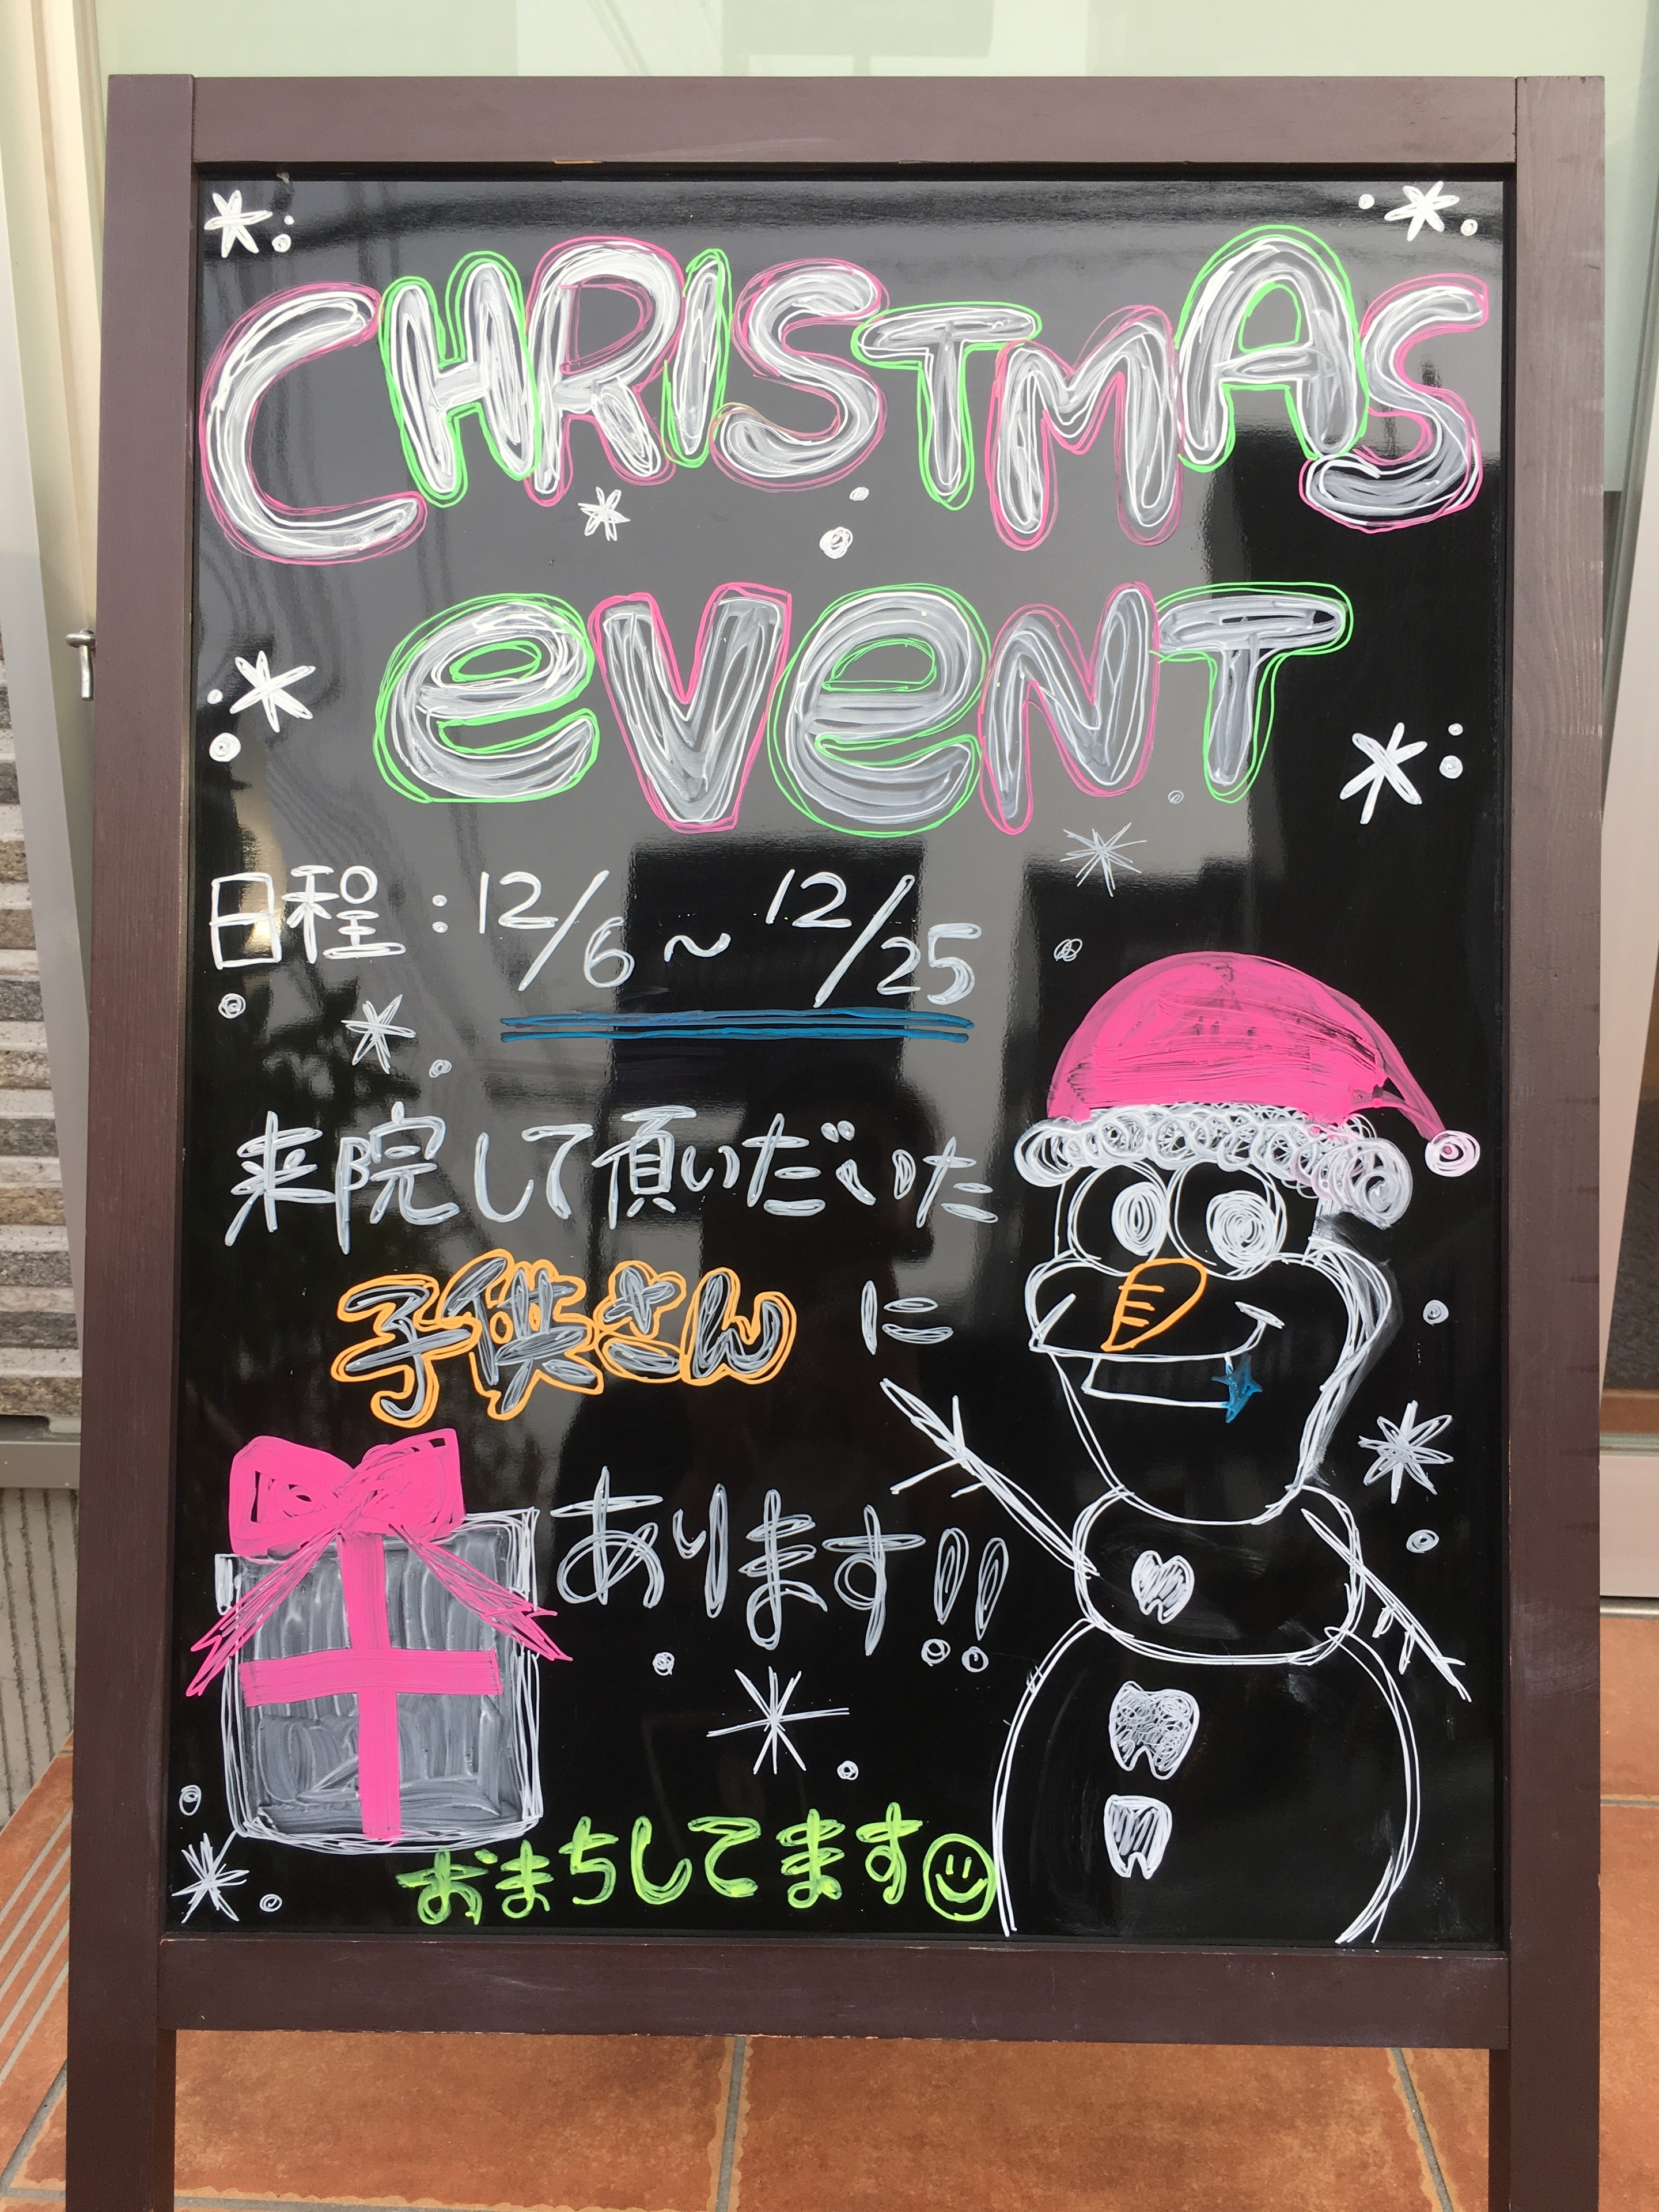 CHRISTMAS
eveNT
日程：12/6～12/25
来院して頂いだいた
子供さんに
あります!!
おまちしてます